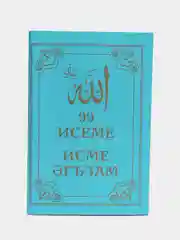 الله
99
ИСЕМЕ
ИСМЕ
ӘГЪЗАМ